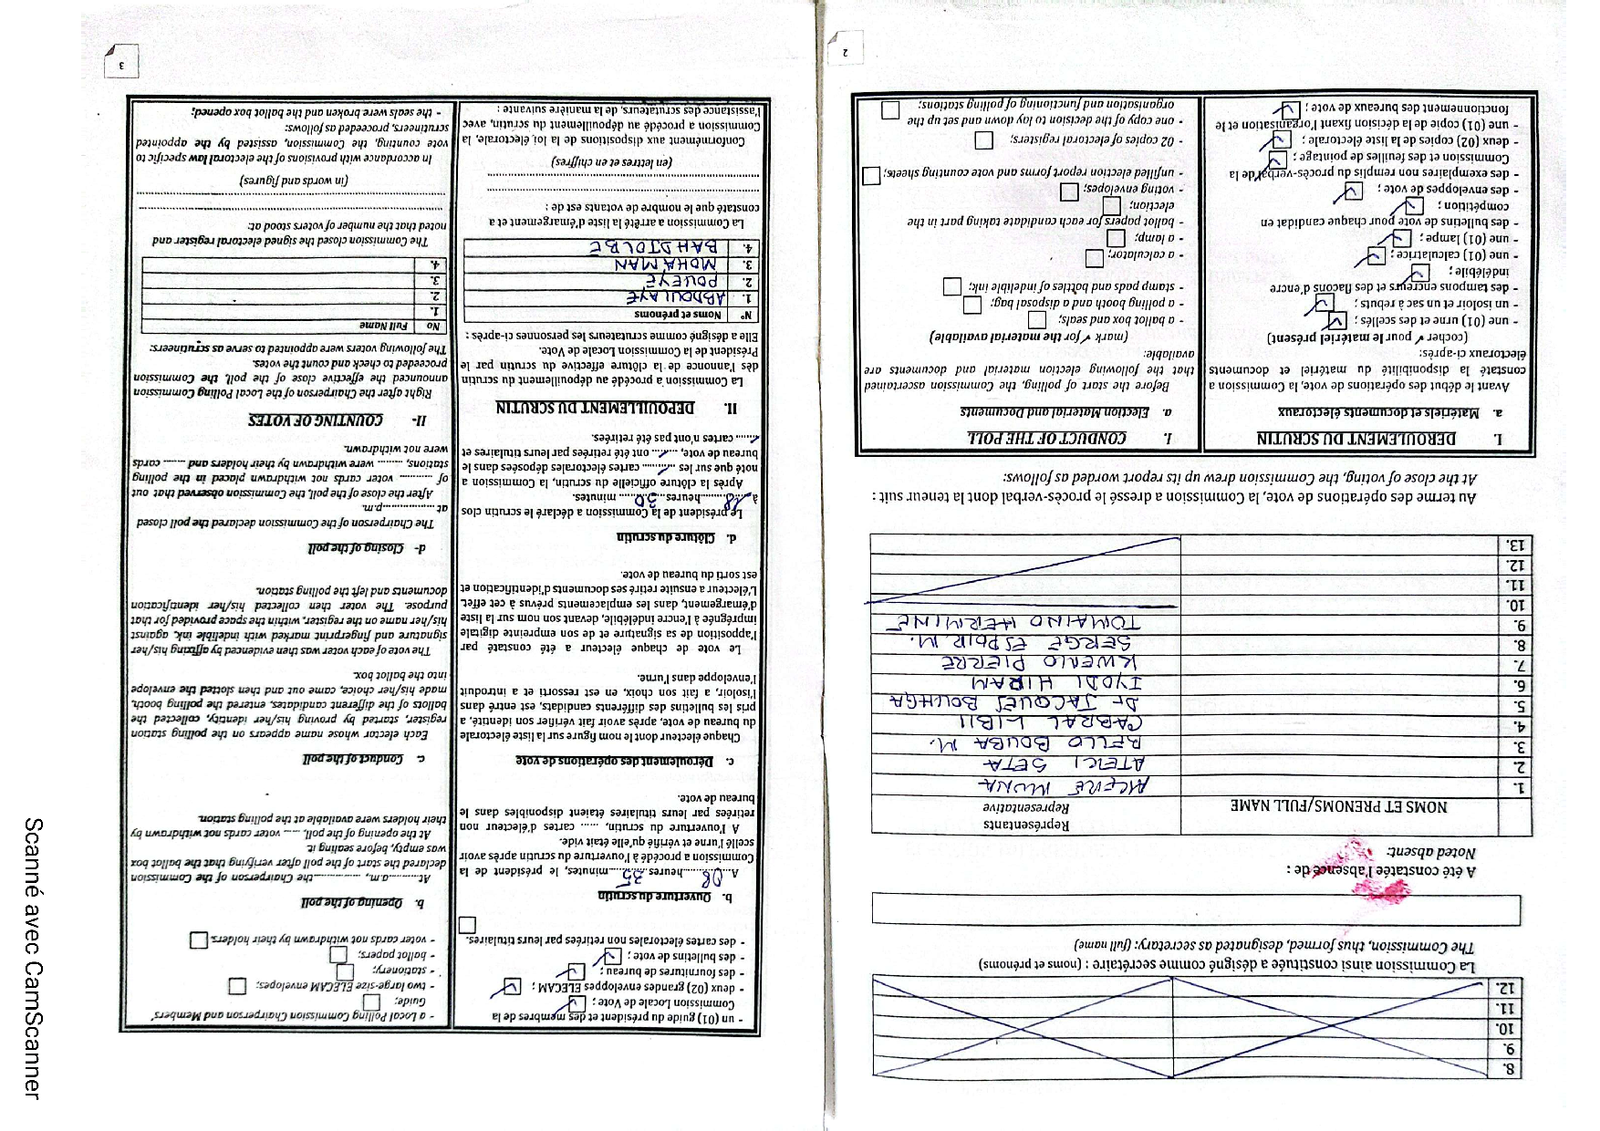 8.
9.
10.
11.
12.
La Commission ainsi constituée a désigné comme secrétaire : (noms et prénoms)
The Commission, thus formed, designated as secretary: (full name)
A été constatée l'absence de :
Noted absent:
NOMS ET PRENOMS/FULL NAME
Représentants
Representative
1. AKERE MUNA
2. ATEKI SETA
3. BELLO BOUBA M.
4. CABRAL LIBII
5. Dr JACQUES BOUHGA
6. IYODI HIRAM
7. KWEMO PIERRE
8. SERGE ESPOIR M.
9. TOMAINO HERMINE
10.
11.
12.
13.
Au terme des opérations de vote, la Commission a dressé le procès-verbal dont la teneur suit :
At the close of voting, the Commission drew up its report worded as follows:
I. DEROULEMENT DU SCRUTIN
a. Matériels et documents électoraux
Avant le début des opérations de vote, la Commission a
constaté la disponibilité du matériel et documents
électoraux ci-après:
(cocher ✓ pour le matériel présent)
- une (01) urne et des scellés ;
- un isoloir et un sac à rebuts ;
- des tampons encreurs et des flacons d'encre
indélébile ;
- une (01) calculatrice ;
- une (01) lampe ;
- des bulletins de vote pour chaque candidat en
compétition ;
- des enveloppes de vote ;
- des exemplaires non remplis du procès-verbal de la
Commission et des feuilles de pointage ;
- deux (02) copies de la liste électorale ;
- une (01) copie de la décision fixant l'organisation et le
fonctionnement des bureaux de vote ;
I. CONDUCT OF THE POLL
a. Election Material and Documents
Before the start of polling, the Commission ascertained
that the following election material and documents are
available:
(mark ✓ for the material available)
- a ballot box and seals;
- a polling booth and a disposal bag;
- stamp pads and bottles of indelible ink;
- a calculator;
- a lamp;
- ballot papers for each candidate taking part in the
election;
- voting envelopes;
- unfilled election report forms and vote counting sheets;
- 02 copies of electoral registers;
- one copy of the decision to lay down and set up the
organisation and functioning of polling stations;
2
- un (01) guide du président et des membres de la
Commission Locale de Vote ;
- deux (02) grandes enveloppes ELECAM ;
- des fournitures de bureau ;
- des bulletins de vote ;
- des cartes électorales non retirées par leurs titulaires.
b. Ouverture du scrutin
A...08...heures...35...minutes, le président de la
Commission a procédé à l'ouverture du scrutin après avoir
scellé l'urne et vérifié qu'elle était vide.
A l'ouverture du scrutin, ...... cartes d'électeur non
retirées par leurs titulaires étaient disponibles dans le
bureau de vote.
c. Déroulement des opérations de vote
Chaque électeur dont le nom figure sur la liste électorale
du bureau de vote, après avoir fait vérifier son identité, a
pris les bulletins des différents candidats, est entré dans
l'isoloir, a fait son choix, en est ressorti et a introduit
l'enveloppe dans l'urne.
Le vote de chaque électeur a été constaté par
l'apposition de sa signature et de son empreinte digitale
imprégnée à l'encre indélébile, devant son nom sur la liste
d'émargement, dans les emplacements prévus à cet effet.
L'électeur a ensuite retiré ses documents d'identification et
est sorti du bureau de vote.
d. Clôture du scrutin
Le président de la Commission a déclaré le scrutin clos
à...18...heures...30...minutes.
Après la clôture officielle du scrutin, la Commission a
noté que sur les ...... cartes électorales déposées dans le
bureau de vote, ...... ont été retirées par leurs titulaires et
...... cartes n'ont pas été retirées.
II. DEPOUILLEMENT DU SCRUTIN
La Commission a procédé au dépouillement du scrutin
dès l'annonce de la clôture effective du scrutin par le
Président de la Commission Locale de Vote.
Elle a désigné comme scrutateurs les personnes ci-après :
N° Noms et prénoms
1. ABDOULAYE
2. POUEYE
3. MOHAMAN
4. BAHDJOLBE
La Commission a arrêté la liste d'émargement et a
constaté que le nombre de votants est de :
(en lettres et en chiffres)
Conformément aux dispositions de la loi électorale, la
Commission a procédé au dépouillement du scrutin, avec
l'assistance des scrutateurs, de la manière suivante :
- a Local Polling Commission Chairperson and Members'
Guide;
- two large-size ELECAM envelopes;
- stationery;
- ballot papers;
- voter cards not withdrawn by their holders.
b. Opening of the poll
At.........a.m, ............the Chairperson of the Commission
declared the start of the poll after verifying that the ballot box
was empty, before sealing it.
At the opening of the poll, ..... voter cards not withdrawn by
their holders were available at the polling station.
c. Conduct of the poll
Each elector whose name appears on the polling station
register, started by proving his/her identity, collected the
ballots of the different candidates, entered the polling booth,
made his/her choice, came out and then slotted the envelope
into the ballot box.
The vote of each voter was then evidenced by affixing his/her
signature and fingerprint marked with indelible ink, against
his/her name on the register, within the space provided for that
purpose. The voter then collected his/her identification
documents and left the polling station.
d- Closing of the poll
The Chairperson of the Commission declared the poll closed
at..................p.m.
After the close of the poll, the Commission observed that out
of ......... voter cards not withdrawn placed in the polling
stations, ....... were withdrawn by their holders and ...... cards
were not withdrawn.
II- COUNTING OF VOTES
Right after the Chairperson of the Local Polling Commission
announced the effective close of the poll, the Commission
proceeded to check and count the votes.
The following voters were appointed to serve as scrutineers:
No Full Name
1.
2.
3.
4.
The Commission closed the signed electoral register and
noted that the number of voters stood at:
(in words and figures)
In accordance with provisions of the electoral law specific to
vote counting, the Commission, assisted by the appointed
scrutineers, proceeded as follows:
- the seals were broken and the ballot box opened;
3
Scanné avec CamScanner